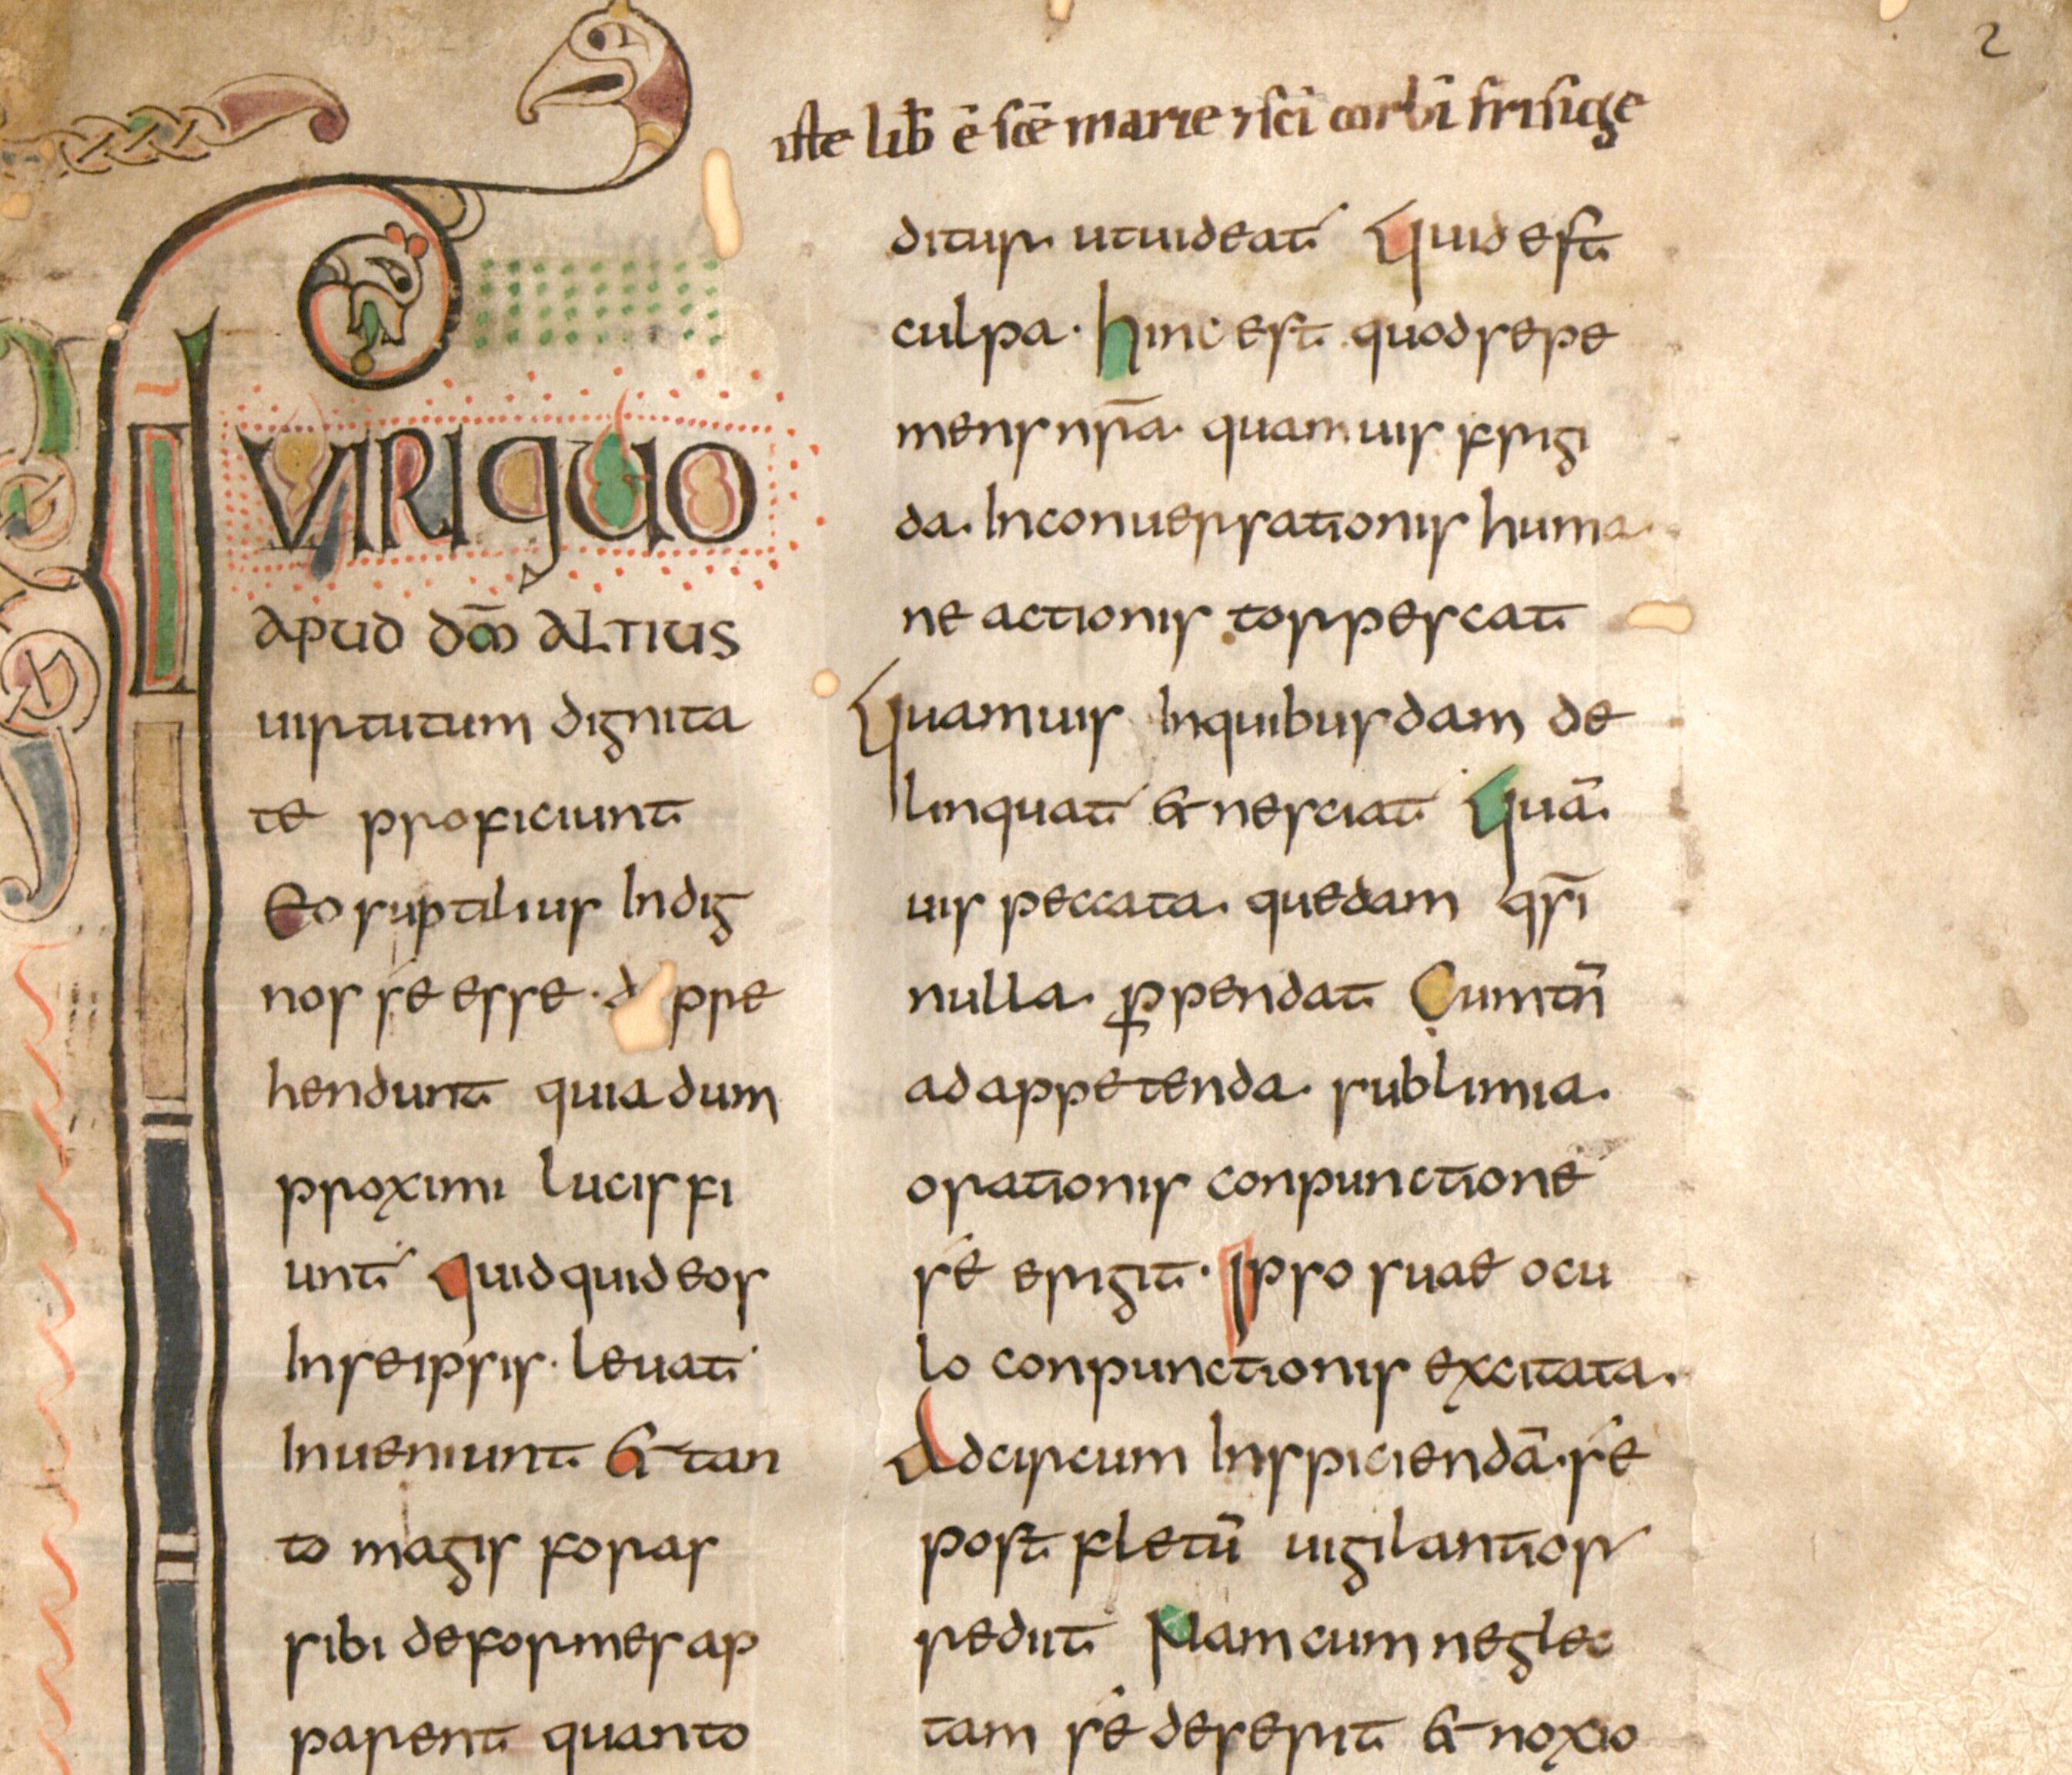 2
iste lib̄ ē sc̄e marie ⁊ sc̄i corbī frisiġe
IUIRI QUO
APUD DM̄ ALTIUS
uirtutum dignita
te proficiunt
Eo suptilius Indig
nos se esse · d ppre
hendunt quia dum
proximi lucis fi
unt Quidquid eos
In se ipsis · leuat
Inueniunt & tan
to magis foras
sibi deformes ap
parent quanto
ditur ut uideat Quid est
culpa · hinc est quod sepe
mens nr̄a quamuis frigi
da. In conuersationis huma
ne actionis torpescat
Quamuis In quibusdam de
linquat & nesciat Quā
uis peccata. quedam qs̄i
nulla. ꝑpendat Cum tn̄
ad appetenda. sublimia.
orationis conpunctione
se erigit · Ipso suae ocu
lo conpunctionis excitata.
Ad circum Inspiciendā. se
post fletū uigilantior
rediit Nam cum neglec
tam se deserit & noxio